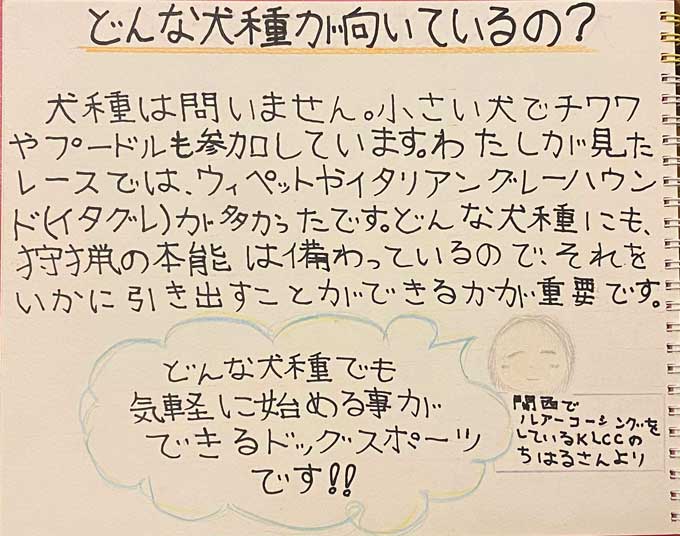 どんな犬種が向いているの?
犬種は問いません。小さい犬でチワワ
やプードルも参加しています。わたしが見た
レースでは、ウィペットやイタリアングレーハウン
ド(イタグレ)が多かったです。どんな犬種にも、
狩猟の本能は備わっているので、それを
いかに引き出すことができるかが重要です。
どんな犬種でも
気軽に始める事が
できるドッグスポーツ
です!!
関西で
ルアーコーシングを
しているKLCCの
ちはるさんより